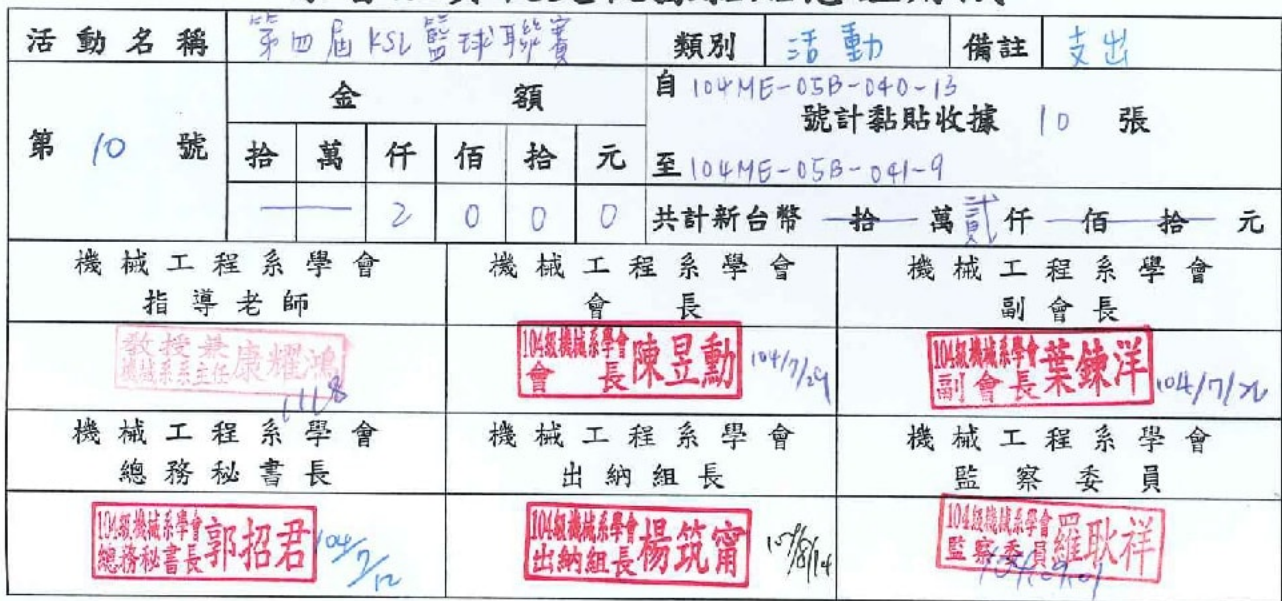 活動名稱 第四屆KSL籃球聯賽 類別 活動 備註 支出
第 10 號
金額
拾 萬 仟 佰 拾 元
2 0 0 0
自 104ME-05B-040-13
號計黏貼收據 10 張
至 104ME-05B-041-9
共計新台幣 拾 萬 貳 仟 佰 拾 元
機械工程系學會 機械工程系學會 機械工程系學會
指導老師 會長 副會長
教授兼
機械系系主任 康耀鴻
104級機械系學會
會長 陳昱勳 104/7/29
104級機械系學會
副會長 葉鍊洋
機械工程系學會 機械工程系學會 機械工程系學會
總務秘書長 出納組長 監察委員
104級機械系學會
總務秘書長 郭招君 104/7/12
104級機械系學會
出納組長 楊筑甯
104級機械系學會
監察委員 羅耿祥